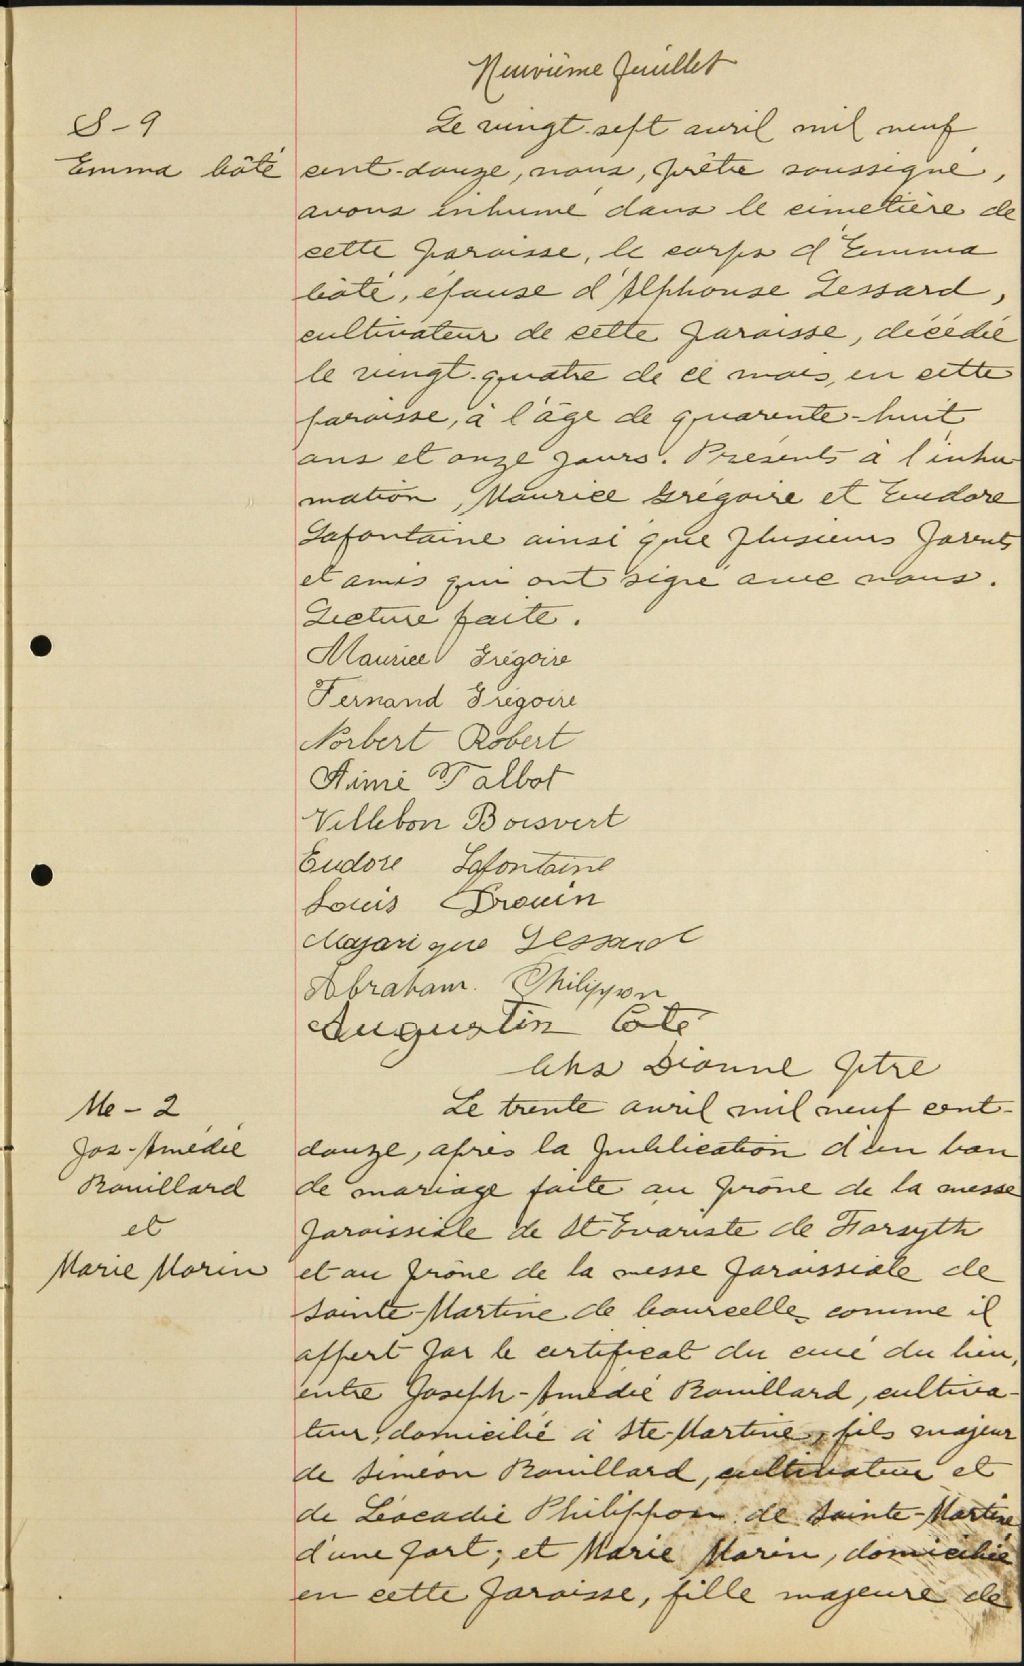 Neuvième feuillet
S-9
Emma Côté
Le vingt-sept avril mil neuf
cent-douze, nous, prêtre soussigné,
avons inhumé dans le cimetière de
cette paroisse, le corps d'Emma
Côté, épouse d'Alphonse Lessard,
cultivateur de cette paroisse, décédée
le vingt-quatre de ce mois, en cette
paroisse, à l'âge de quarente-huit
ans et onze jours. Présents à l'inhu-
mation, Maurice Grégoire et Eudore
Lafontaine ainsi que plusieurs parents
et amis qui ont signé avec nous.
Lecture faite.
Maurice Grégoire
Fernand Grégoire
Norbert Robert
Aimé Talbot
Villebon Boisvert
Eudore Lafontaine
Louis Drouin
Majorique Lessard
Abraham Philippon
Augustin Coté
Chs Dionne ptre
Me-2
Jos-Amédée
Rouillard
et
Marie Morin
Le trente avril mil neuf cent-
douze, après la publication d'un ban
de mariage faite au prône de la messe
paroissiale de St-Evariste de Forsyth
et au prône de la messe paroissiale de
Sainte-Martine de Courcelles comme il
appert par le certificat du curé du lieu,
entre Joseph-Amédée Rouillard, cultiva-
teur, domicilié à Ste-Martine, fils majeur
de Siméon Rouillard, cultivateur et
de Léocadie Philippon de Sainte-Martine
d'une part; et Marie Morin, domiciliée
en cette paroisse, fille majeure de